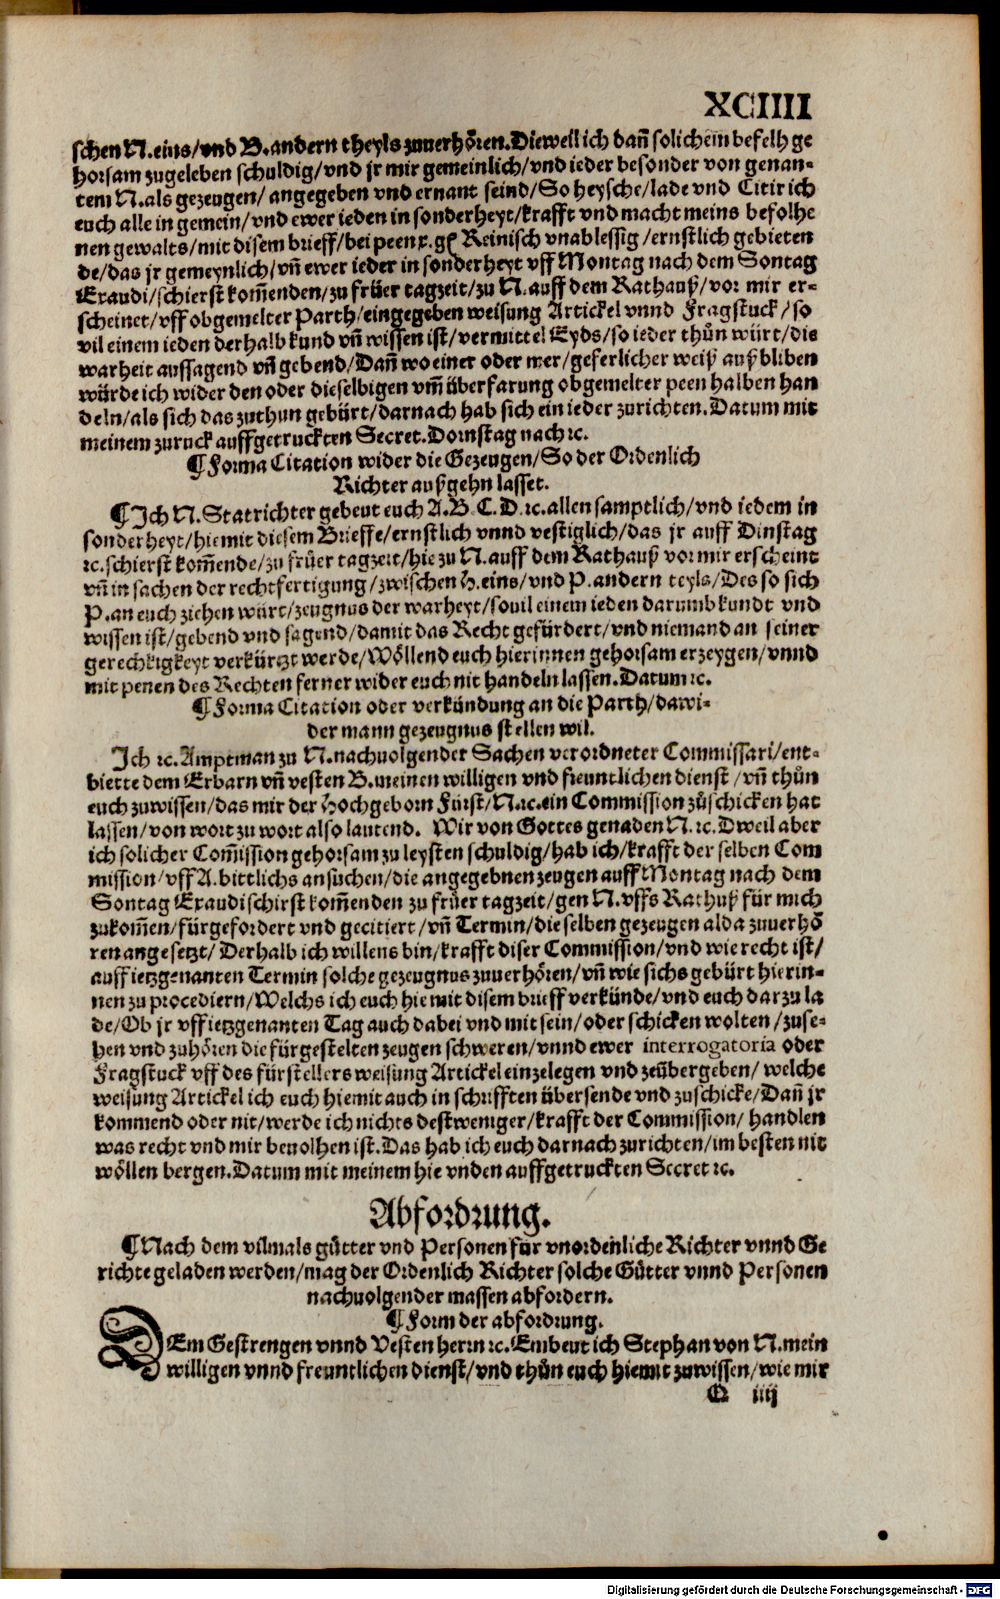 XCIIII
schen N. eins/vnd B. andern theyls zuuerhören. Dieweil ich dañ solichem befelh ge
horsam zugeleben schuldig/vnd jr mir gemeinlich/vnd ieder besonder von genan-
tem N. als gezeugen/ angegeben vnd ernant seind/So heysche/lade vnd Citir ich
euch alle in gemein/vnd ewer ieden in sonderheyt/krafft vnd macht meins befolhe
nen gewalts/mit disem brieff/bei peen x. gl Reinisch vnablessig/ernstlich gebieten
de/das jr gemeynlich/vñ ewer ieder in sonderheyt vff Montag nach dem Sontag
Exaudi/schierst kom̃enden/zu früer tagzeit/zu N. auff dem Rathauß/vor mir er-
scheinet/vff obgemelter Parth/eingegeben weisung Artickel vnnd Fragstuck/so
vil einem ieden derhalb kund vñ wissen ist/vermittel Eyds/so ieder thůn würt/die
warheit aussagend vñ gebend/Dañ wo einer oder mer/geferlicher weiß außbliben
würde ich wider den oder dieselbigen vm̃ überfarung obgemelter peen halben han
deln/als sich das zuthun gebürt/darnach hab sich ein ieder zurichten. Datum mit
meinem zuruck auffgetruckten Secret. Dornstag nach ꝛc.
¶ Forma Citation wider die Gezeugen/So der Ordenlich
Richter außgehn lasset.
¶ Ich N. Statrichter gebeut euch A. B. C. D. ꝛc. allen samptlich/vnd iedem in
sonderheyt/hiemit diesem Brieffe/ernstlich vnnd vestiglich/das jr auff Dinstag
ꝛc. schierst kom̃ende/zu früer tagzeit/hie zu N. auff dem Rathauß vor mir erscheint
vñ in sachen der rechtfertigung/zwischen H. eins/vnd P. andern teyls/Des so sich
P. an euch ziehen würt/zeugnus der warheyt/souil einem ieden darumb kundt vnd
wissen ist/gebend vnd sagend/damit das Recht gefürdert/vnd niemand an seiner
gerechkigkeyt verkürtzt werde/Wöllend euch hierinnen gehorsam erzeygen/vnnd
mit penen des Rechten ferner wider euch nit handeln lassen. Datum ꝛc.
¶ Forma Citation oder verkündung an die Parth/dawi-
der mann gezeugnus stellen wil.
Ich ꝛc. Amptman zu N. nachuolgender Sachen verordneter Commissari/ent-
biette dem Erbarn vñ vesten B. meinen willigen vnd freuntlichen dienst/vñ thůn
euch zuwissen/das mir der Hochgeborn Fürst/N. ꝛc. ein Commission zůschicken hat
lassen/von wort zu wort also lautend. Wir von Gottes genaden N. ꝛc. Dweil aber
ich solicher Com̃ission gehorsam zu leysten schuldig/hab ich/krafft der selben Com
mission/vff A. bittlichs ansuchen/die angegebnen zeugen auff Montag nach dem
Sontag Exaudi schirst kom̃enden zu früer tagzeit/gen N. vffs Rathuß für mich
zukom̃en/fürgefordert vnd gecitiert/vñ Termin/die selben gezeugen alda zuuerhö
ren angesetzt/ Derhalb ich willens bin/krafft diser Commission/vnd wie recht ist/
auff ietzgenanten Termin solche gezeugnus zuuerhören/vñ wie sichs gebürt hierin-
nen zu procediern/Welchs ich euch hie mit disem brieff verkünde/vnd euch darzu la
de/Ob jr vff ietzgenanten Tag auch dabei vnd mit sein/oder schicken wolten/zuse-
hen vnd zuhören die fürgestelten zeugen schweren/vnnd ewer interrogatoria oder
Fragstuck vff des fürstellers weisung Artickel einzelegen vnd zeübergeben/ welche
weisung Artickel ich euch hiemit auch in schrifften übersende vnd zuschicke/Dañ jr
kommend oder nit/werde ich nichts destweniger/krafft der Commission/ handlen
was recht vnd mir beuolhen ist. Das hab ich euch darnach zurichten/im besten nit
wöllen bergen. Datum mit meinem hie vnden auffgetruckten Secret ꝛc.
Abfordrung.
¶ Nach dem vilmals gütter vnd Personen für vnordenliche Richter vnnd Ge
richte geladen werden/mag der Ordenlich Richter solche Gütter vnnd Personen
nachuolgender massen abfordern.
¶ Form der abfordrung.
DEm Gestrengen vnnd Vesten herrn ꝛc. Embeut ich Stephan von N. mein
willigen vnnd freuntlichen dienst/vnd thůn euch hiemit zuwissen/wie mir
Q iiij
Digitalisierung gefördert durch die Deutsche Forschungsgemeinschaft - DFG